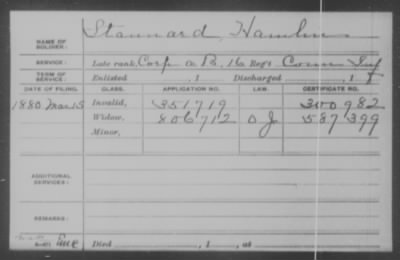 NAME OF SOLDIER: Stannard, Hamlin
SERVICE: Late rank, Corp Co B, 16 Reg't Conn Inf
TERM OF SERVICE: Enlisted , 1 Discharged , 1
DATE OF FILING. CLASS. APPLICATION NO. LAW. CERTIFICATE NO.
1880 Mar 15 Invalid, 351719 300982
Widow, 806712 O J 587399
Minor,
ADDITIONAL SERVICES:
REMARKS:
Died , 1 , at